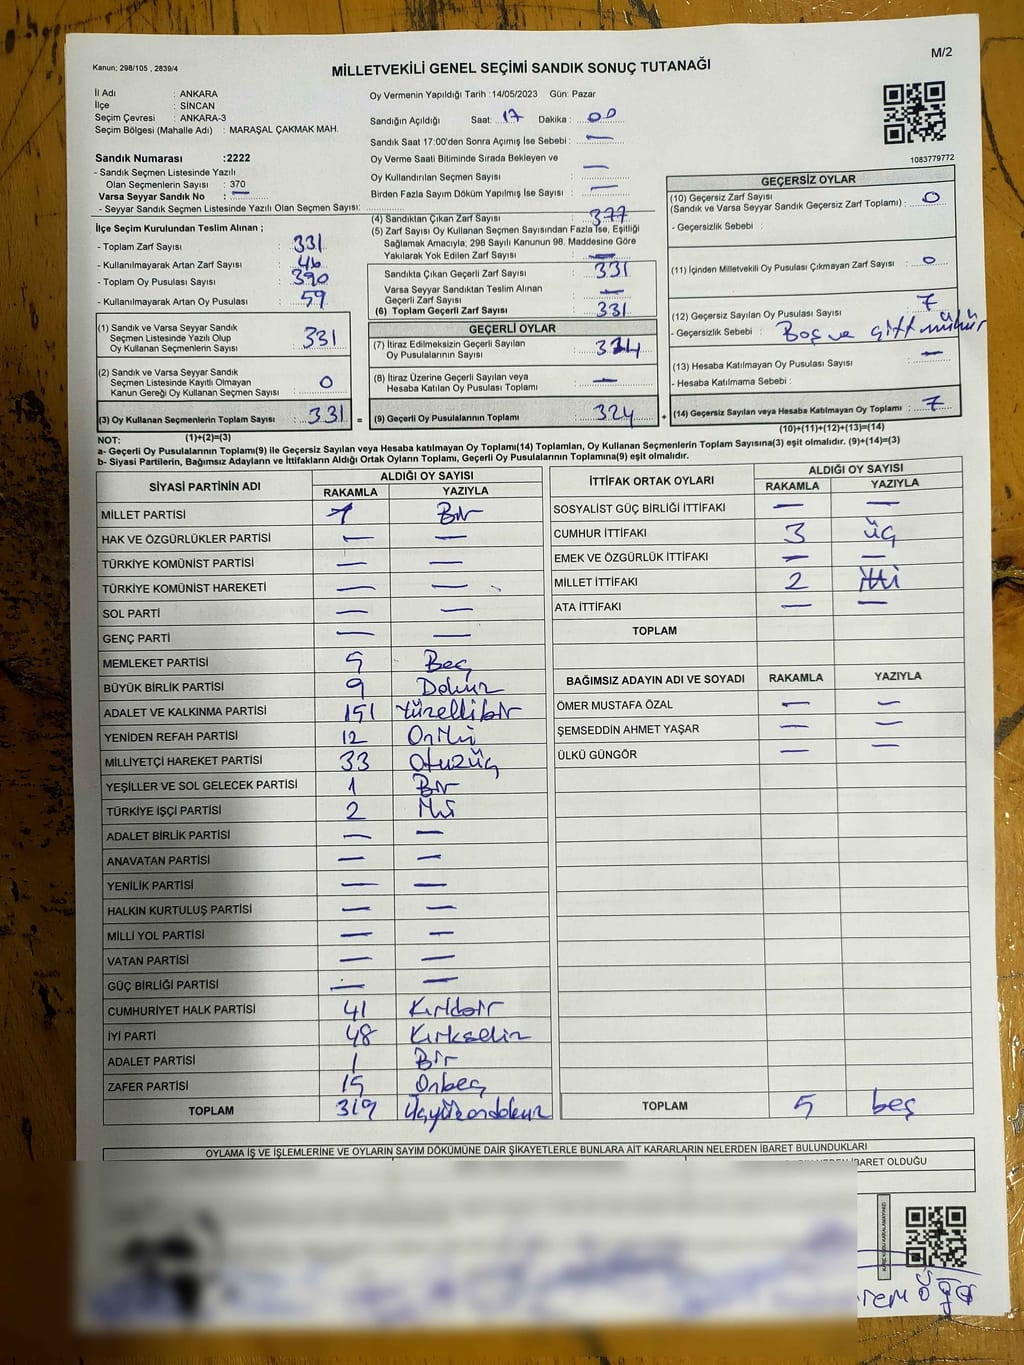 M/2
Kanun; 298/105 , 2839/4
MİLLETVEKİLİ GENEL SEÇİMİ SANDIK SONUÇ TUTANAĞI
İl Adı : ANKARA
İlçe : SİNCAN
Seçim Çevresi : ANKARA-3
Seçim Bölgesi (Mahalle Adı) : MARAŞAL ÇAKMAK MAH.
Sandık Numarası :2222
- Sandık Seçmen Listesinde Yazılı
Olan Seçmenlerin Sayısı : 370
Varsa Seyyar Sandık No : —
- Seyyar Sandık Seçmen Listesinde Yazılı Olan Seçmen Sayısı:
Oy Vermenin Yapıldığı Tarih :14/05/2023 Gün: Pazar
Sandığın Açıldığı Saat: 17 Dakika : 00
Sandık Saat 17:00'den Sonra Açımış İse Sebebi : —
Oy Verme Saati Bitiminde Sırada Bekleyen ve
Oy Kullandırılan Seçmen Sayısı : —
Birden Fazla Sayım Döküm Yapılmış İse Sayısı : —
1083779772
İlçe Seçim Kurulundan Teslim Alınan ;
- Toplam Zarf Sayısı : 331
- Kullanılmayarak Artan Zarf Sayısı : 46
- Toplam Oy Pusulası Sayısı : 390
- Kullanılmayarak Artan Oy Pusulası : 59
(1) Sandık ve Varsa Seyyar Sandık
Seçmen Listesinde Yazılı Olup
Oy Kullanan Seçmenlerin Sayısı : 331
(2) Sandık ve Varsa Seyyar Sandık
Seçmen Listesinde Kayıtlı Olmayan
Kanun Gereği Oy Kullanan Seçmen Sayısı : 0
(3) Oy Kullanan Seçmenlerin Toplam Sayısı : 331 =
(1)+(2)=(3)
(4) Sandıktan Çıkan Zarf Sayısı : 377
(5) Zarf Sayısı Oy Kullanan Seçmen Sayısından Fazla İse, Eşitliği
Sağlamak Amacıyla, 298 Sayılı Kanunun 98. Maddesine Göre
Yakılarak Yok Edilen Zarf Sayısı : —
Sandıkta Çıkan Geçerli Zarf Sayısı : 331
Varsa Seyyar Sandıktan Teslim Alınan
Geçerli Zarf Sayısı : —
(6) Toplam Geçerli Zarf Sayısı : 331
GEÇERLİ OYLAR
(7) İtiraz Edilmeksizin Geçerli Sayılan
Oy Pusulalarının Sayısı : 324
(8) İtiraz Üzerine Geçerli Sayılan veya
Hesaba Katılan Oy Pusulası Toplamı : —
(9) Geçerli Oy Pusulalarının Toplamı : 324 +
GEÇERSİZ OYLAR
(10) Geçersiz Zarf Sayısı
(Sandık ve Varsa Seyyar Sandık Geçersiz Zarf Toplamı) : 0
- Geçersizlik Sebebi :
(11) İçinden Milletvekili Oy Pusulası Çıkmayan Zarf Sayısı : 0
(12) Geçersiz Sayılan Oy Pusulası Sayısı : 7
- Geçersizlik Sebebi : Boş ve çift mühür
(13) Hesaba Katılmayan Oy Pusulası Sayısı : —
- Hesaba Katılmama Sebebi :
(14) Geçersiz Sayılan veya Hesaba Katılmayan Oy Toplamı : 7
(10)+(11)+(12)+(13)=(14)
NOT:
a- Geçerli Oy Pusulalarının Toplamı(9) ile Geçersiz Sayılan veya Hesaba katılmayan Oy Toplamı(14) Toplamları, Oy Kullanan Seçmenlerin Toplam Sayısına(3) eşit olmalıdır. (9)+(14)=(3)
b- Siyasi Partilerin, Bağımsız Adayların ve İttifakların Aldığı Ortak Oyların Toplamı, Geçerli Oy Pusulalarının Toplamına(9) eşit olmalıdır.
SİYASİ PARTİNİN ADI ALDIĞI OY SAYISI
RAKAMLA YAZIYLA
MİLLET PARTİSİ 1 Bir
HAK VE ÖZGÜRLÜKLER PARTİSİ — —
TÜRKİYE KOMÜNİST PARTİSİ — —
TÜRKİYE KOMÜNİST HAREKETİ — —
SOL PARTİ — —
GENÇ PARTİ — —
MEMLEKET PARTİSİ 5 Beş
BÜYÜK BİRLİK PARTİSİ 9 Dokuz
ADALET VE KALKINMA PARTİSİ 151 Yüzellibir
YENİDEN REFAH PARTİSİ 12 Oniki
MİLLİYETÇİ HAREKET PARTİSİ 33 Otuzüç
YEŞİLLER VE SOL GELECEK PARTİSİ 1 Bir
TÜRKİYE İŞÇİ PARTİSİ 2 İki
ADALET BİRLİK PARTİSİ — —
ANAVATAN PARTİSİ — —
YENİLİK PARTİSİ — —
HALKIN KURTULUŞ PARTİSİ — —
MİLLİ YOL PARTİSİ — —
VATAN PARTİSİ — —
GÜÇ BİRLİĞİ PARTİSİ — —
CUMHURİYET HALK PARTİSİ 41 Kırkbir
İYİ PARTİ 48 Kırksekiz
ADALET PARTİSİ 1 Bir
ZAFER PARTİSİ 15 Onbeş
TOPLAM 319 Üçyüzondokuz
İTTİFAK ORTAK OYLARI ALDIĞI OY SAYISI
RAKAMLA YAZIYLA
SOSYALİST GÜÇ BİRLİĞİ İTTİFAKI — —
CUMHUR İTTİFAKI 3 üç
EMEK VE ÖZGÜRLÜK İTTİFAKI — —
MİLLET İTTİFAKI 2 İki
ATA İTTİFAKI — —
TOPLAM
BAĞIMSIZ ADAYIN ADI VE SOYADI RAKAMLA YAZIYLA
ÖMER MUSTAFA ÖZAL — —
ŞEMSEDDİN AHMET YAŞAR — —
ÜLKÜ GÜNGÖR — —
TOPLAM 5 beş
OYLAMA İŞ VE İŞLEMLERİNE VE OYLARIN SAYIM DÖKÜMÜNE DAİR ŞİKAYETLERLE BUNLARA AİT KARARLARIN NELERDEN İBARET BULUNDUKLARI
İBARET OLDUĞU